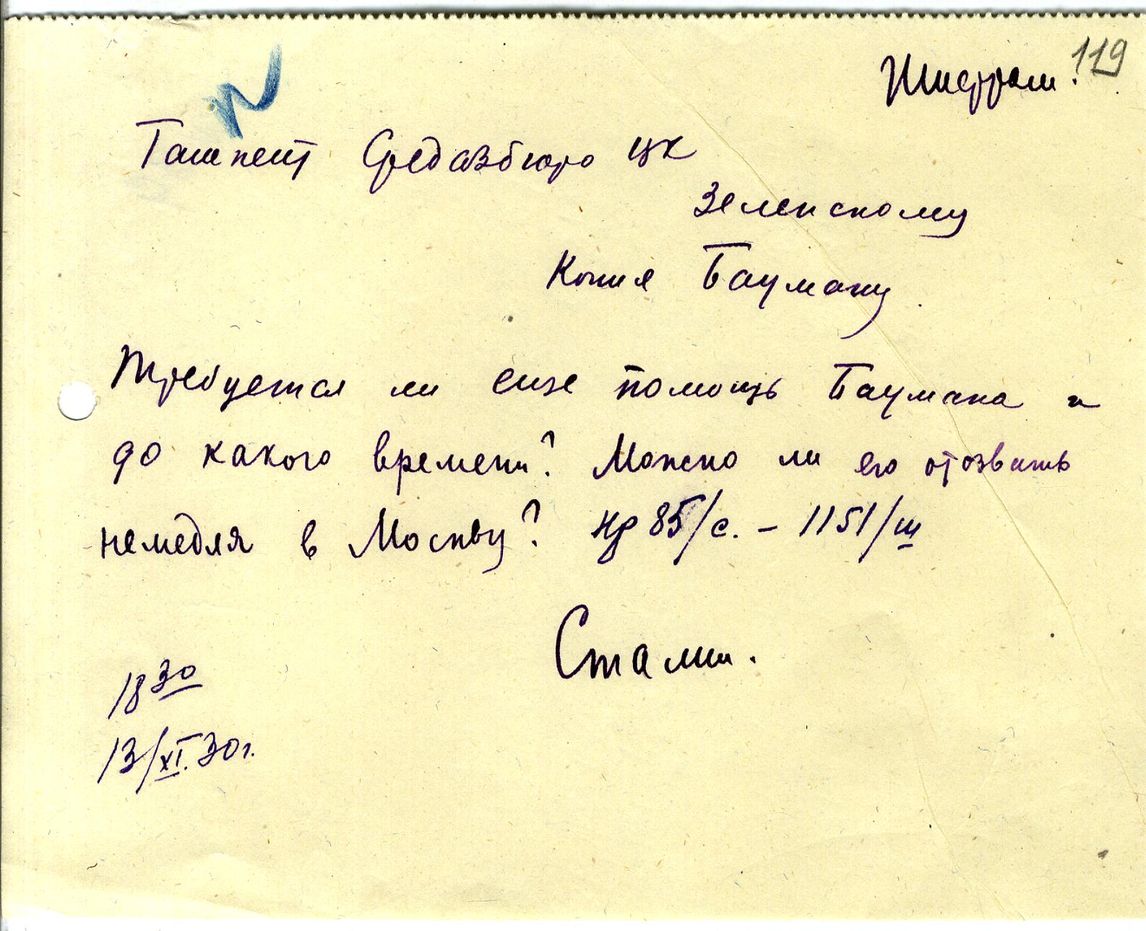 119
Шифром.
Ташкент Средазбюро ЦК
Зеленскому
Копия Бауману.
Требуется ли еще помощь Баумана и
до какого времени? Можно ли его отозвать
немедля в Москву? Нр 85/с. – 1151/ш
Сталин.
18 30
13/XI.30г.